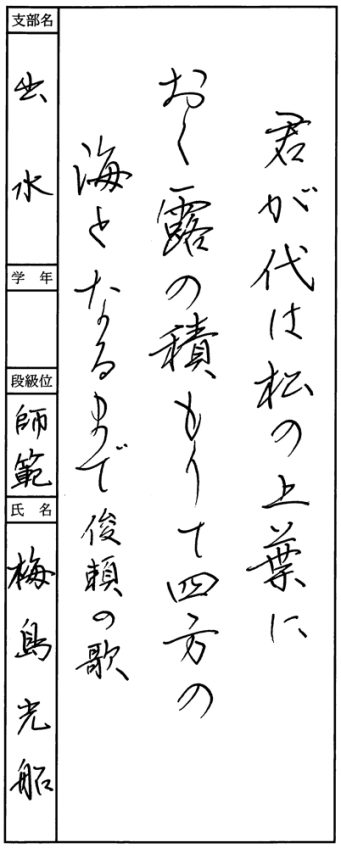 君が代は松の上葉に
おく露の積もりて四方の
海となるまで 俊頼の歌
支部名
出水
学年
段級位
師範
氏名
梅島光船